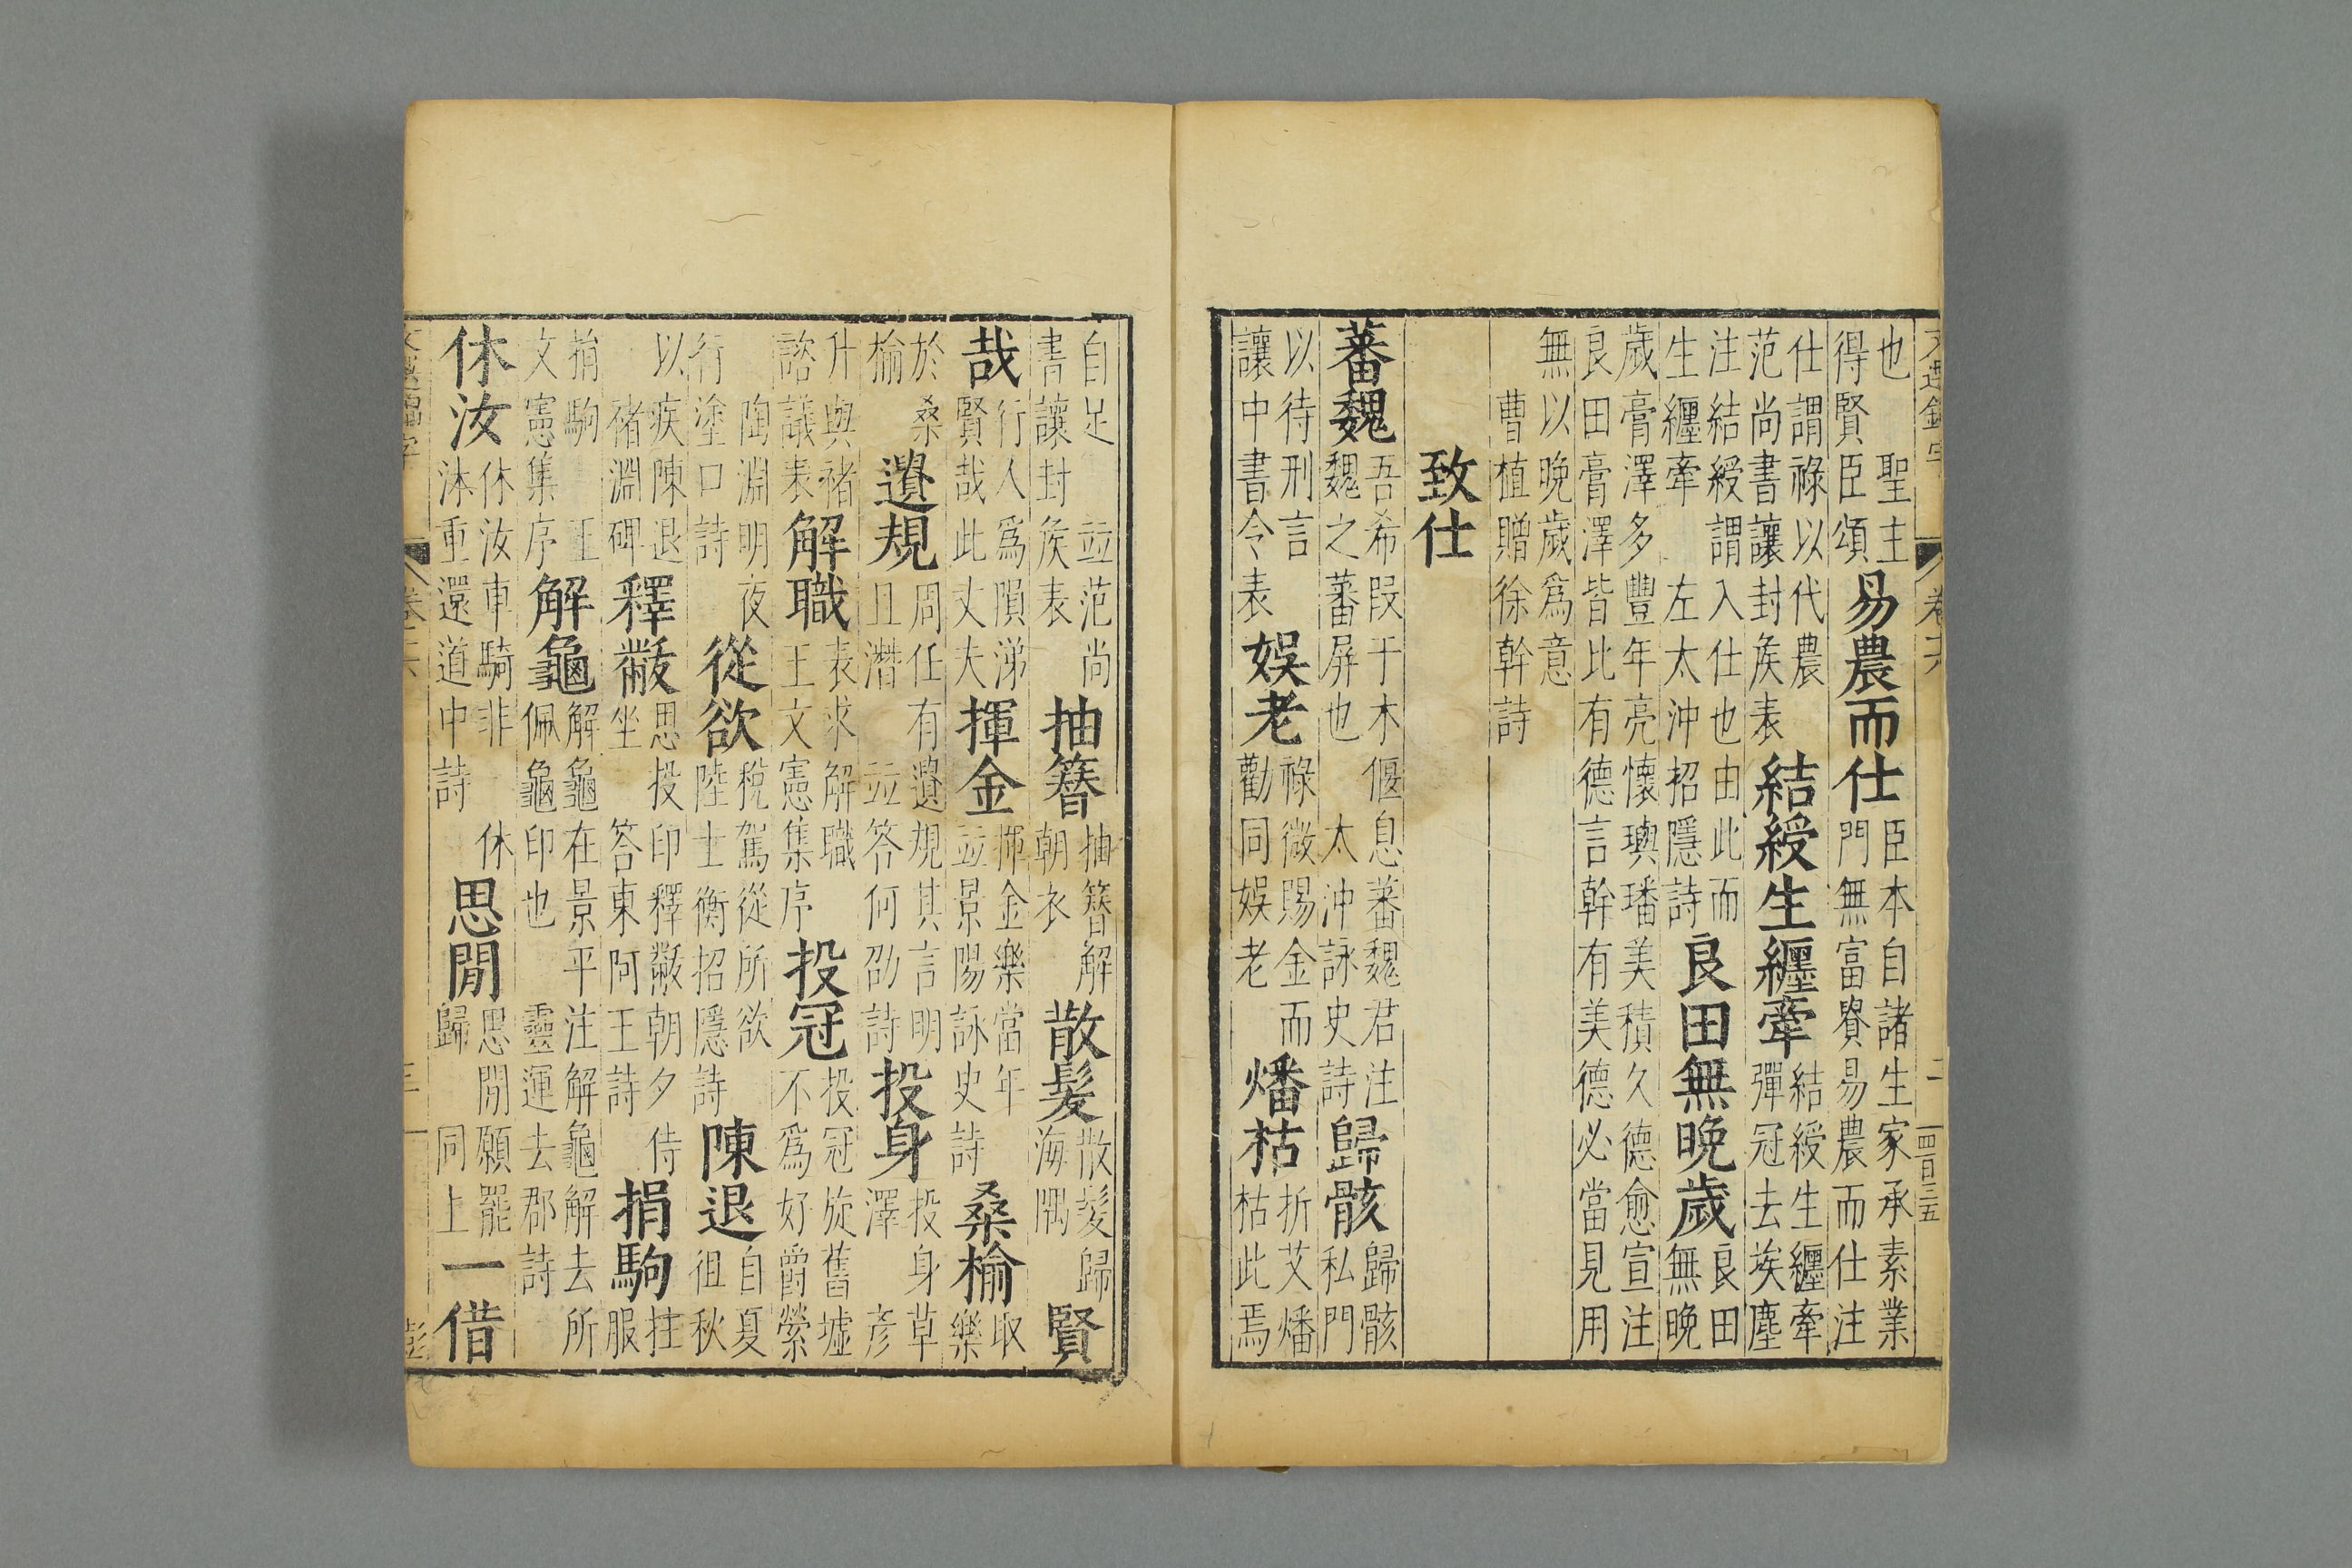 文選錦字 卷六 二 四百三五
也 聖主得賢臣頌易農而仕臣本自諸生家承素業門無富貴易農而仕注
仕謂祿以代農范尚書讓封侯表結綬生纏牽結綬生纏牽彈冠去埃塵
注結綬謂入仕也由此而生纏牽 左太沖招隱詩良田無晚歲良田無晚
歲膏澤多豐年亮懷璵璠美積久德愈宣注良田膏澤皆比有德言幹有美德必當見用
無以晚歲為意 曹植贈徐幹詩
致仕
蕃魏吾希段干木偃息蕃魏君注魏之蕃屏也 太沖詠史詩歸骸歸骸私門
以待刑言讓中書令表娛老祿微賜金而勸同娛老燔枯折艾燔枯此焉
自足 並范尚書讓封侯表抽簪抽簪解朝衣散髮散髮歸海隅賢
哉行人為隕涕賢哉此丈夫揮金揮金樂當年並景陽詠史詩桑榆取樂
於桑榆遺規周任有遺規其言明且潛 並答何劭詩投身投身草澤 彥
升與褚諮議表解職表求解職王文憲集序投冠投冠旋舊墟不為好爵縈
陶淵明夜行塗口詩從欲稅駕從所欲陸士衡招隱詩陳退自夏徂秋
以疾陳退褚淵碑釋黻思投印釋黻朝夕侍坐 答東阿王詩捐駒拄服
捐駒 王文憲集序解龜解龜在景平注解龜解去所佩龜印也 靈運去郡詩
休汝休汝車騎非 休沐重還道中詩思閒思閒願罷歸 同上一借
文選錦字 卷六 三